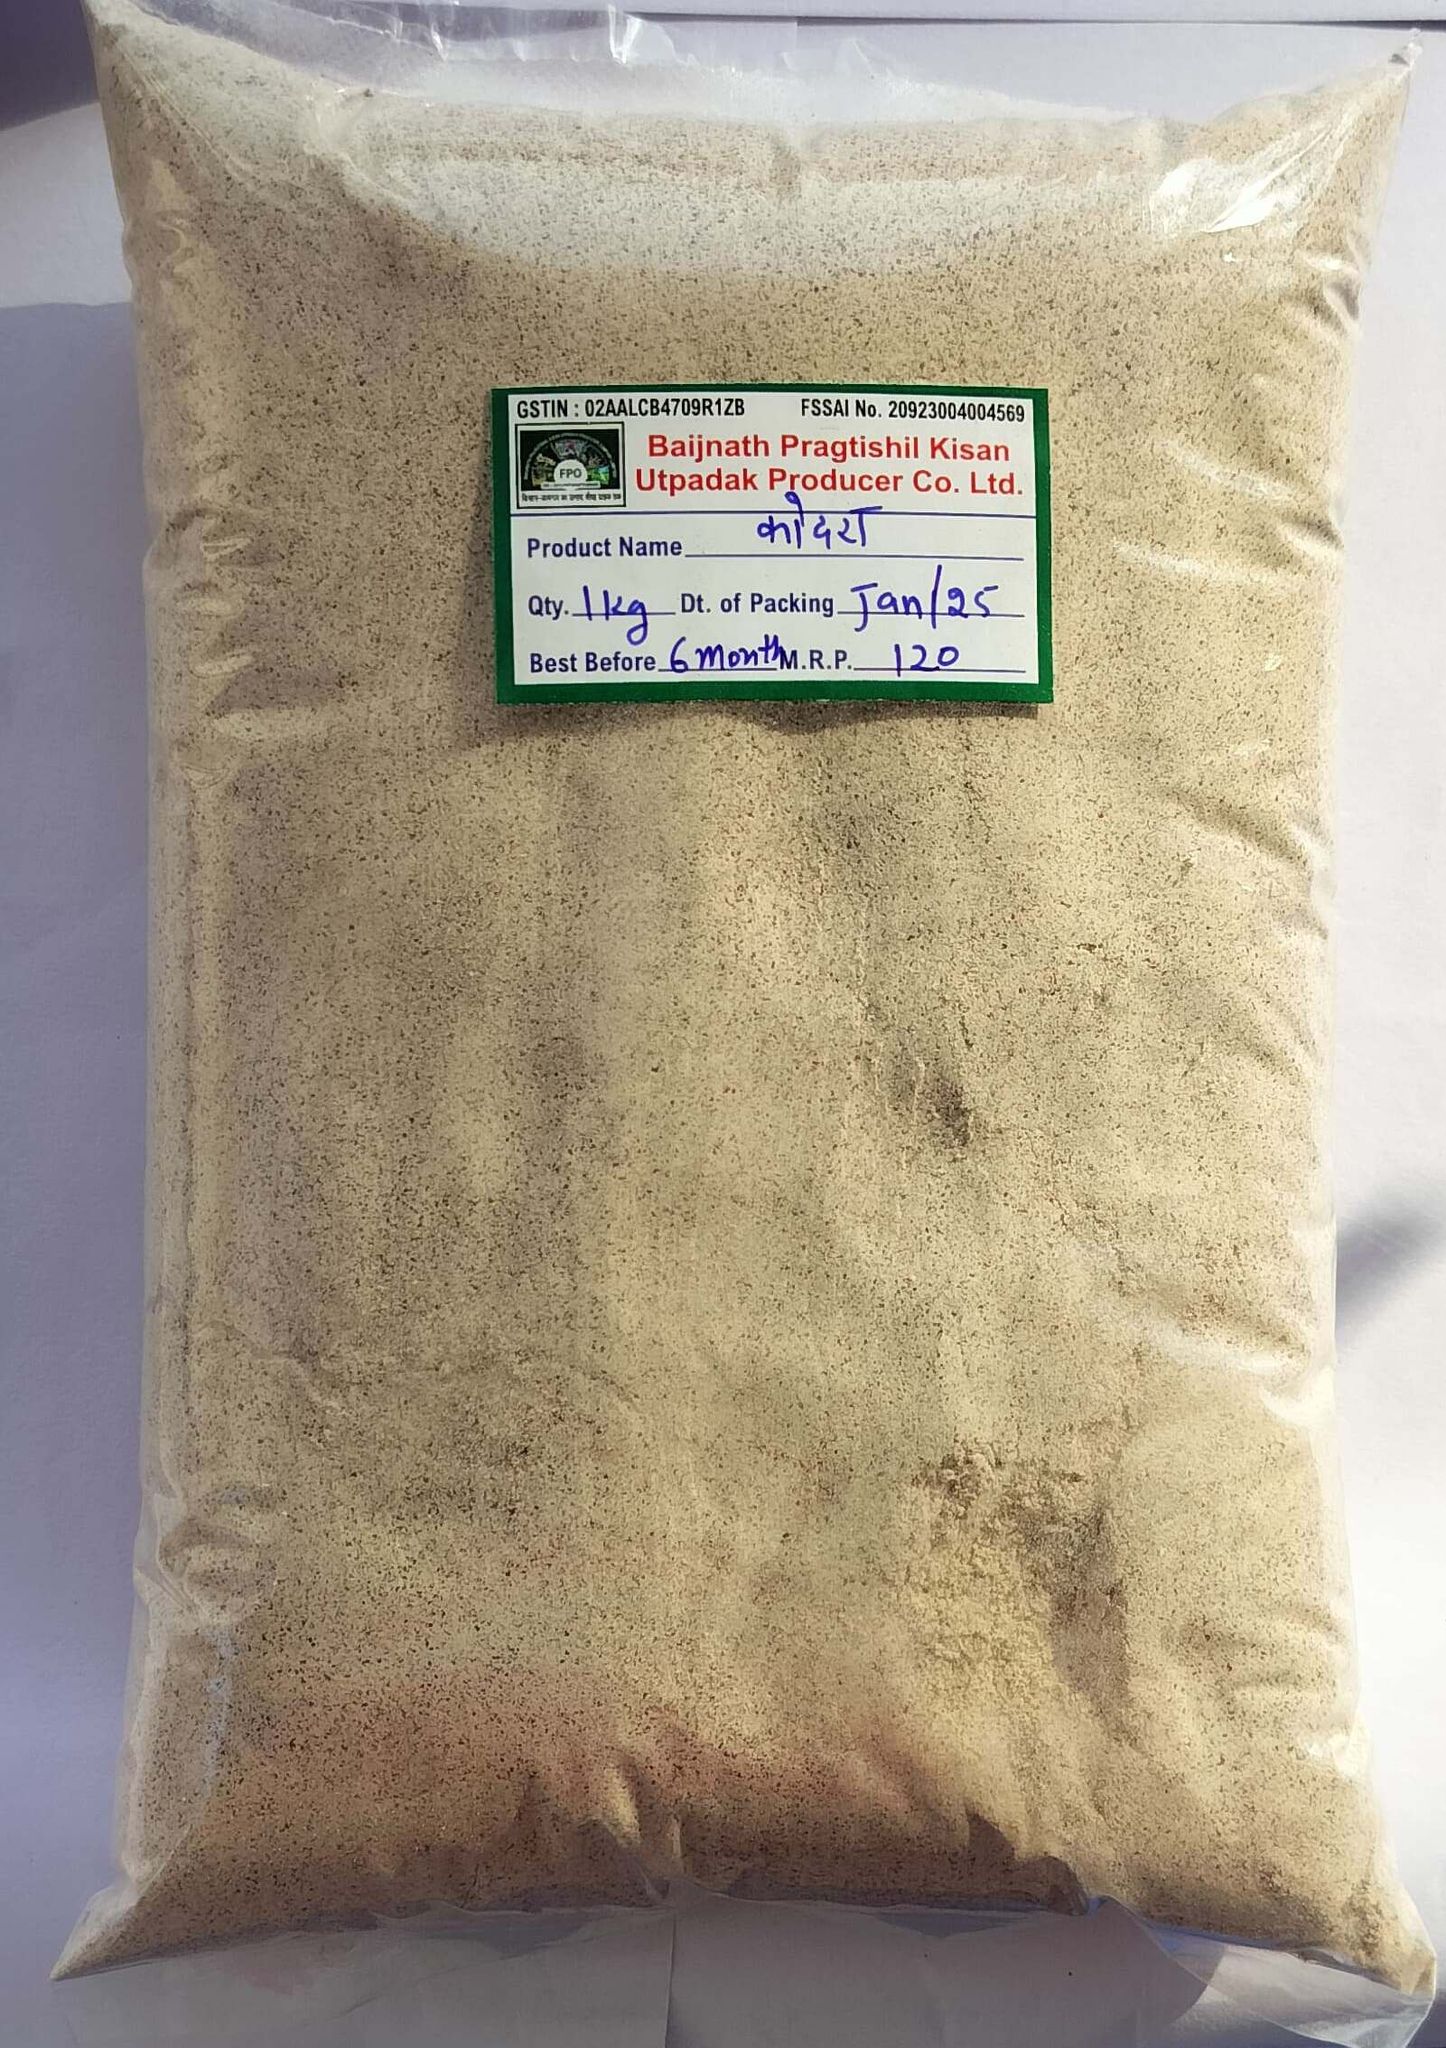 GSTIN : 02AALCB4709R1ZB FSSAI No. 20923004004569
Baijnath Pragtishil Kisan
Utpadak Producer Co. Ltd.
FPO
Product Name कोदरा
Qty. 1 kg Dt. of Packing Jan/25
Best Before 6 month M.R.P. 120